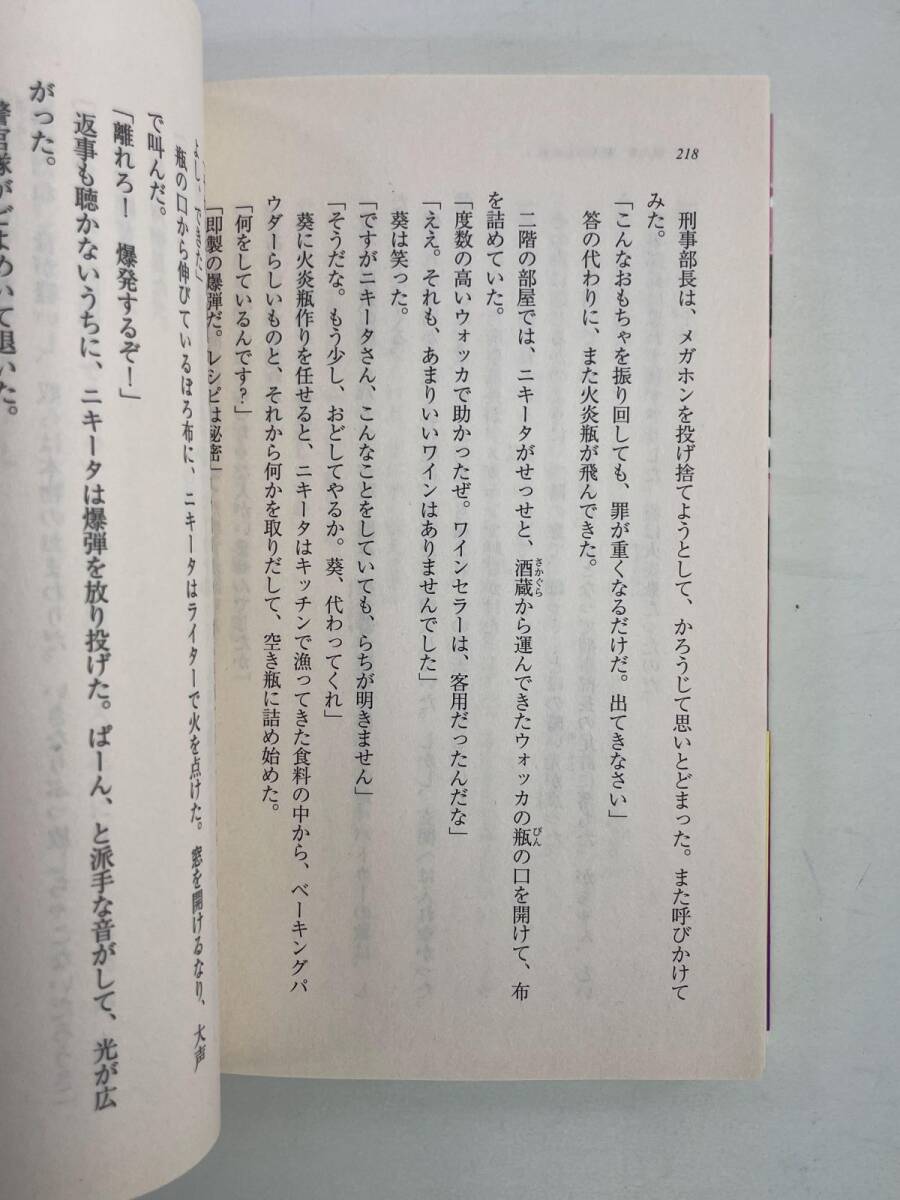 218
刑事部長は、メガホンを投げ捨てようとして、かろうじて思いとどまった。また呼びかけて
みた。
「こんなおもちゃを振り回しても、罪が重くなるだけだ。出てきなさい」
答の代わりに、また火炎瓶が飛んできた。
二階の部屋では、ニキータがせっせと、酒蔵さかぐらから運んできたウォッカの瓶びんの口を開けて、布
を詰めていた。
「度数の高いウォッカで助かったぜ。ワインセラーは、客用だったんだな」
「ええ。それも、あまりいいワインはありませんでした」
葵は笑った。
「ですがニキータさん、こんなことをしていても、らちが明きません」
「そうだな。もう少し、おどしてやるか。葵、代わってくれ」
葵に火炎瓶作りを任せると、ニキータはキッチンで漁ってきた食料の中から、ベーキングパ
ウダーらしいものと、それから何かを取りだして、空き瓶に詰め始めた。
「何をしているんです？」
「即製の爆弾だ。レシピは秘密」
よし、できた」
瓶の口から伸びているぼろ布に、ニキータはライターで火を点けた。窓を開けるなり、大声
で叫んだ。
「離れろ！　爆発するぞ！」
返事も聴かないうちに、ニキータは爆弾を放り投げた。ばーん、と派手な音がして、光が広
がった。
警官隊がどよめいて退いた。